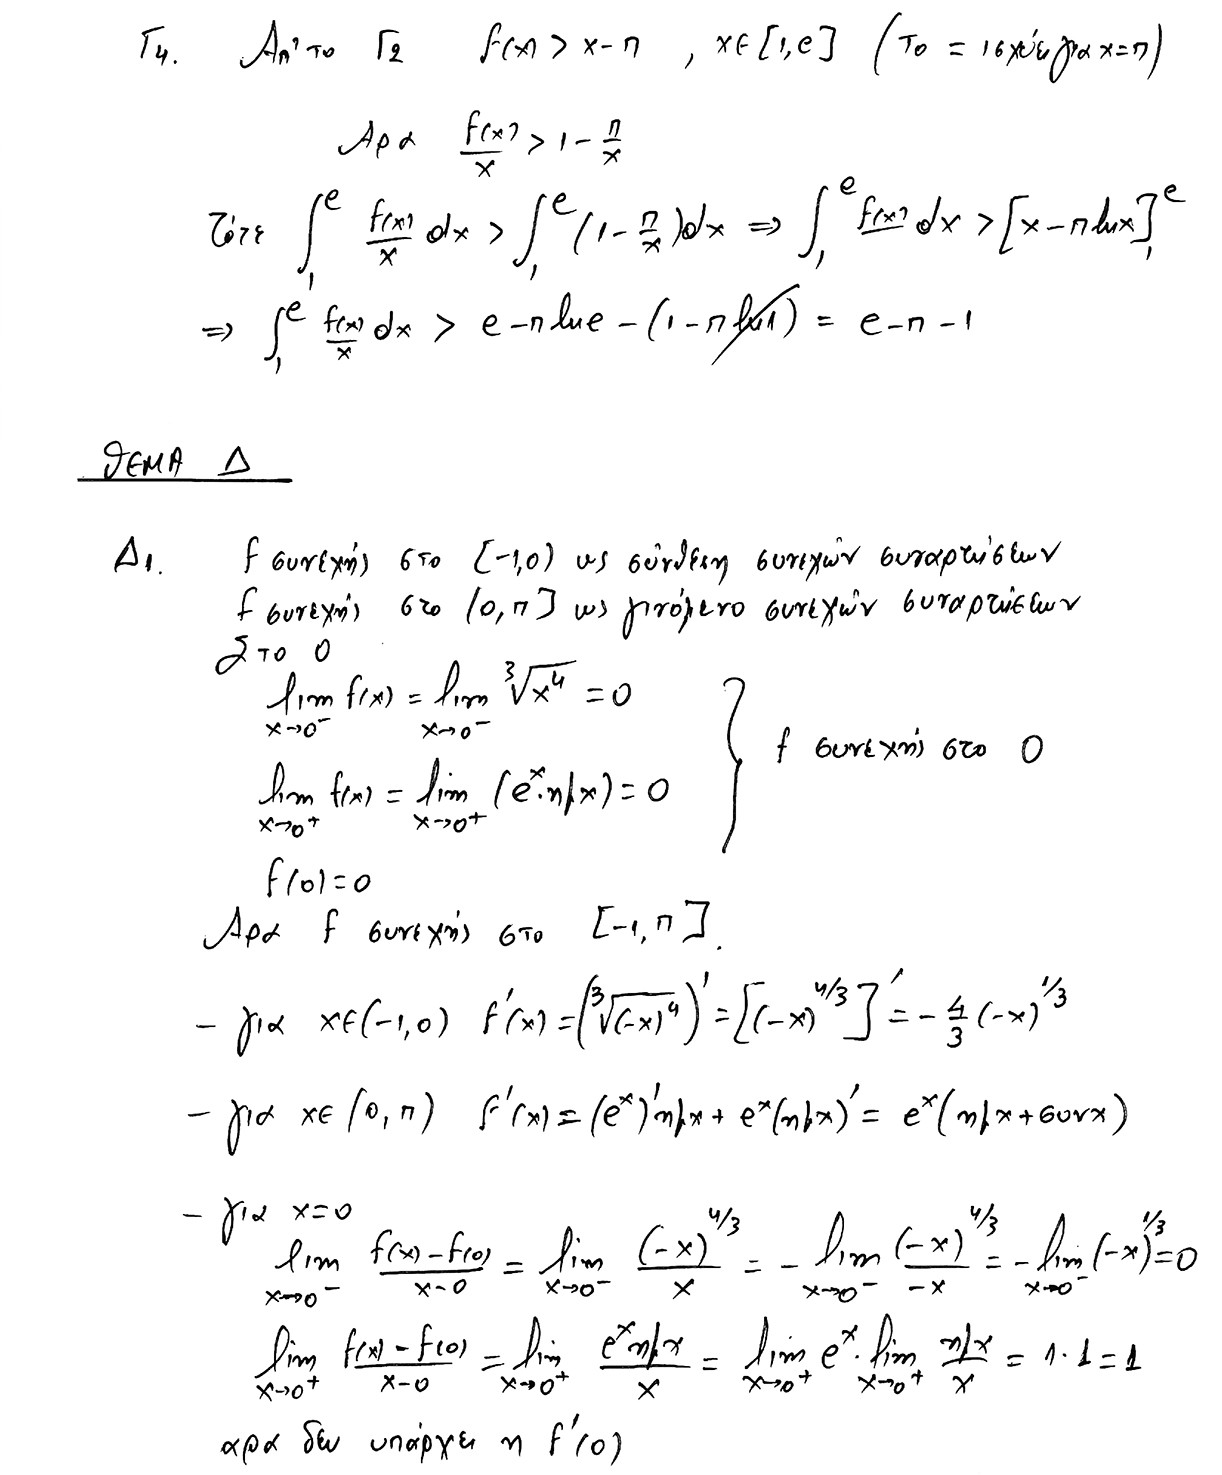 Γ4. Απ' το Γ2 f(x) > x-π , x∈[1,e] (το = ισχύει για x=π)
Αρα f(x)/x > 1 - π/x
Τότε ∫₁ᵉ f(x)/x dx > ∫₁ᵉ (1 - π/x)dx ⇒ ∫₁ᵉ f(x)/ dx > [x-πlnx]₁ᵉ
⇒ ∫₁ᵉ f(x)/x dx > e-πlne-(1-πln1) = e-π-1
ΘΕΜΑ Δ
Δ1. f συνεχής στο [-1,0) ως σύνθεση συνεχών συναρτήσεων
f συνεχής στο (0,π] ως γινόμενο συνεχών συναρτήσεων
Στο 0
lim x→0⁻ f(x) = lim x→0⁻ ³√x⁴ = 0
f συνεχής στο 0
lim x→0⁺ f(x) = lim x→0⁺ (eˣ·ημx) = 0
f(0)=0
Αρα f συνεχής στο [-1,π].
- για x∈(-1,0) f'(x) = (³√(-x)⁴)' = [(-x)^4/3]' = -4/3 (-x)^1/3
- για x∈(0,π) f'(x) = (eˣ)'ημx + eˣ(ημx)' = eˣ(ημx+συνx)
- για x=0
lim x→0⁻ f(x)-f(0)/x-0 = lim x→0⁻ (-x)^4/3/x = - lim x→0⁻ (-x)^4/3/-x = - lim x→0⁻ (-x)^1/3 = 0
lim x→0⁺ f(x)-f(0)/x-0 = lim x→0⁺ eˣημx/x = lim x→0⁺ eˣ· lim x→0⁺ ημx/x = 1·1=1
αρα δεν υπάρχει η f'(0)